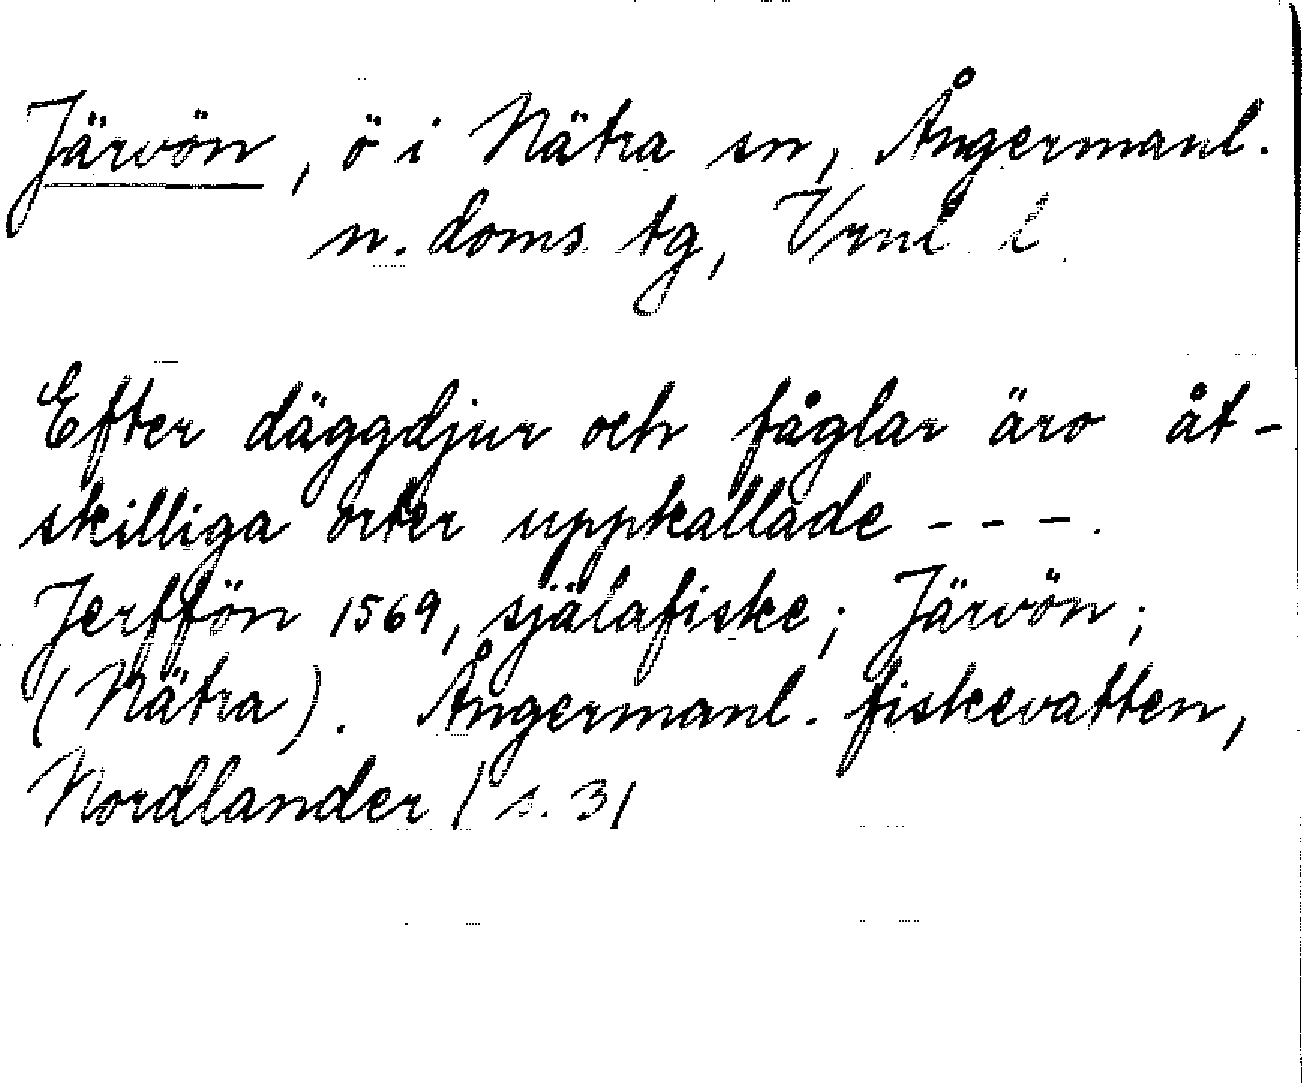 Järvön, ö i Nätra sn, Ångermanl.
n. doms. tg, Vrnl l
Efter däggdjur och fåglar äro åt-
skilliga orter uppkallade - - - .
Jerffön 1569, själafiske; Järvön;
(Nätra). Ångermanl. fiskevatten,
Nordlander / s. 31